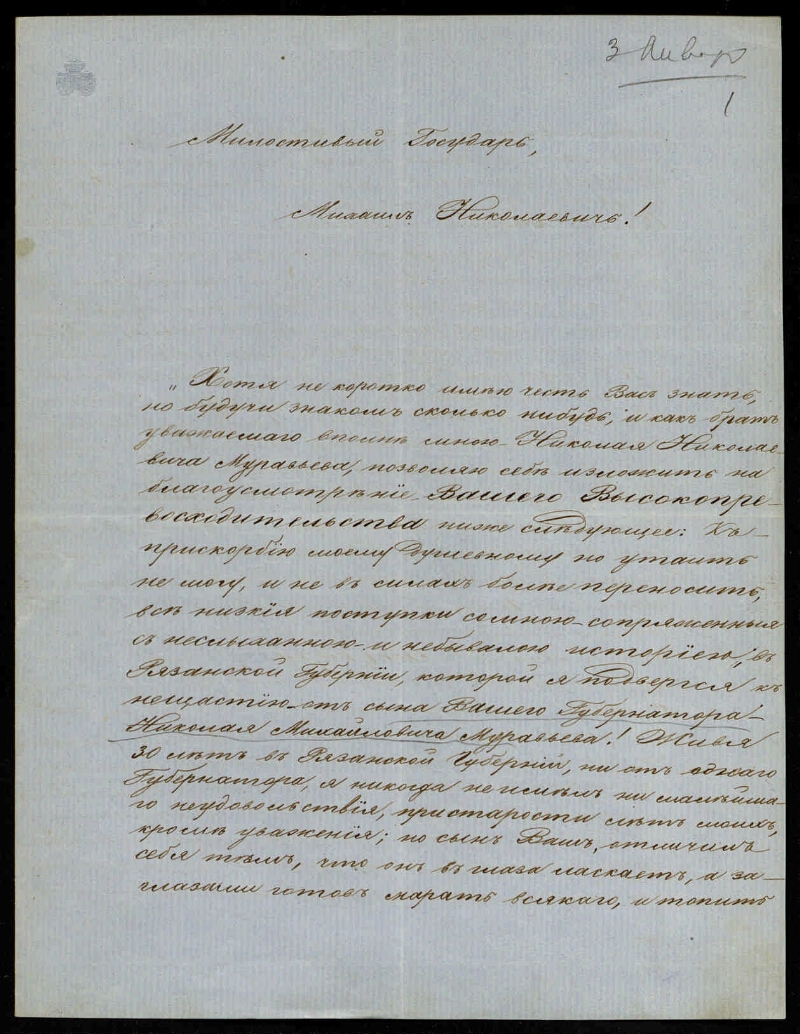 3 Январ
1
Милостивый Государь,
Михаилъ Николаевичъ!
„Хотя не коротко имѣю честь Васъ знать,
но будучи знакомъ сколько нибудь, и какъ братъ
уважаемаго вполнѣ мною Николая Николае-
вича Муравьева, позволяю себѣ изложить на
благоусмотрѣніе Вашего Высокопре-
восходительства ниже слѣдующее: Къ
прискорбію моему душевному но утаить
не могу, и не въ силахъ болѣе переносить,
всѣ низкія поступки сомною сопряженныя
съ неслыханною и небывалою исторіею, въ
Рязанской Губерніи, которой я подвергся къ
нещастію отъ сына Вашего Губернатора
Николая Михайловича Муравьева! Живя
30 лѣтъ въ Рязанской Губерніи, ни отъ однаго
Губернатора, я никогда не имѣлъ ни малѣйша-
го неудовольствія, пристарости лѣтъ моихъ,
кромѣ уваженія; но сынъ Вашъ, отличилъ
себя тѣмъ, что онъ въ глаза ласкаетъ, а за-
глазами готовъ марать всякаго, и топить